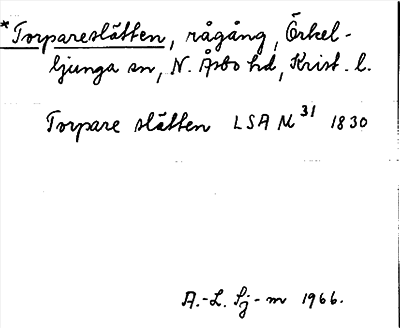 *Torpareslätten, rågång, Örkel-
ljunga sn, N. Åsbo hd, Krist. l.
Torpare slätten LSA M 31 1830
A.-L. Sj-m 1966.